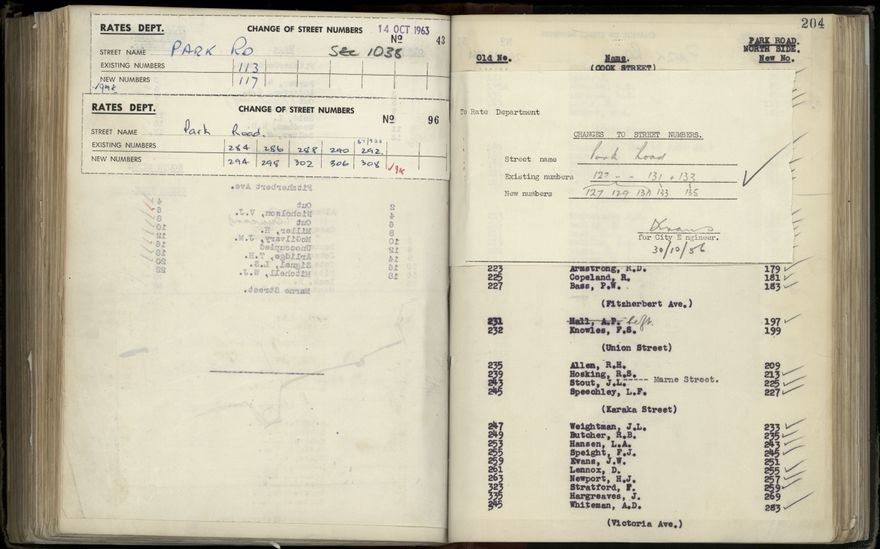 RATES DEPT. CHANGE OF STREET NUMBERS 14 OCT 1963
No 43
STREET NAME PARK RD Sec 1038
EXISTING NUMBERS 113
NEW NUMBERS 117
RATES DEPT. CHANGE OF STREET NUMBERS
No 96
STREET NAME Park Road.
EXISTING NUMBERS 284 286 288 290 292
NEW NUMBERS 294 298 302 306 308
204
PARK ROAD.
NORTH SIDE.
Old No. Name. New No.
(COOK STREET)
To Rate Department
CHANGES TO STREET NUMBERS.
Street name Park Road
Existing numbers 127 - - 131 + 133
New numbers 127 129 131 133 135
for City Engineer.
30/10/56
223 Armstrong, R.D. 179
225 Copeland, R. 181
227 Bass, P.W. 183
(Fitzherbert Ave.)
231 Hall, A.P. left. 197
232 Knowles, F.S. 199
(Union Street)
235 Allen, R.H. 209
239 Hosking, R.S. 213
243 Stout, J.L.----- Marne Street. 225
245 Speechley, L.F. 227
(Karaka Street)
247 Weightman, J.L. 233
249 Butcher, R.B. 235
253 Hansen, L.A. 243
255 Speight, F.J. 245
259 Evans, J.W. 251
261 Lennox, D. 255
263 Newport, H.J. 257
323 Stratford, F. 259
335 Hargreaves, J. 269
345 Whiteman, A.D. 283
(Victoria Ave.)